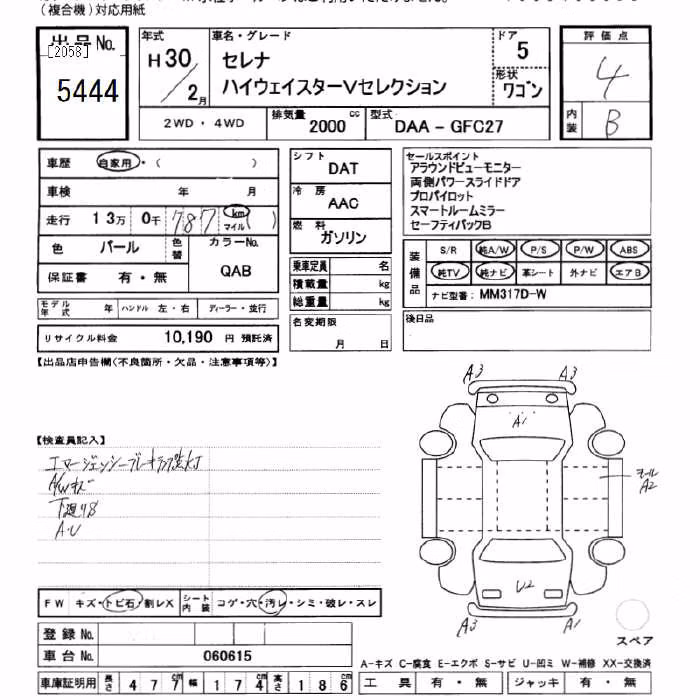 (複合機)対応用紙
出品No.
[2058]
5444
年式
H30/2月
車名・グレード
セレナ
ハイウェイスターVセレクション
ドア
5
形状
ワゴン
評価点
4
内装
B
2WD・4WD
排気量
2000 cc
型式
DAA-GFC27
車歴 自家用・( )
車検 年 月
走行 13万 0千 787 km マイル ( )
色 パール 色替
カラーNo.
QAB
保証書 有・無
モデル年式 年 ハンドル 左・右 ディーラー・並行
リサイクル料金 10,190 円 預託済
シフト
DAT
冷房
AAC
燃料
ガソリン
乗車定員 名
積載量 kg
総重量 kg
名変期限
月 日
セールスポイント
アラウンドビューモニター
両側パワースライドドア
プロパイロット
スマートルームミラー
セーフティパックB
装備品
S/R 純A/W P/S P/W ABS
純TV 純ナビ 革シート 外ナビ エアB
ナビ型番: MM317D-W
後日品
【出品店申告欄(不良箇所・欠品・注意事項等)】
【検査員記入】
エマージェンシーブレーキランプ点灯
A/Wキズ
下廻りS
A・U
A3 A3
A1
A2
U2
A3 A1
スペア
FW キズ・トビ石・割レX シート内装 コゲ・穴・汚レ・シミ・破レ・スレ
登録No.
車台No. 060615
車庫証明用 長さ 477cm 幅 174cm 高さ 186cm
A-キズ C-腐食 E-エクボ S-サビ U-凹ミ W-補修 XX-交換済
工具 有・無 ジャッキ 有・無